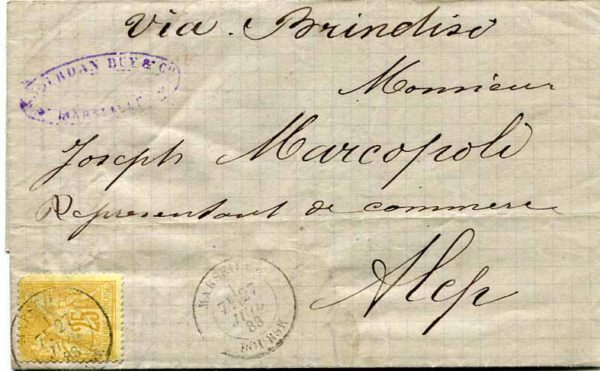 Via. Brindisi
JOURDAN BUY & Co
MARSEILLE
Monsieur
Joseph Marcopoli
Representant de commerce
Alep
25
MARSEILLE
27
JUIL
83
BOURSE
27
83